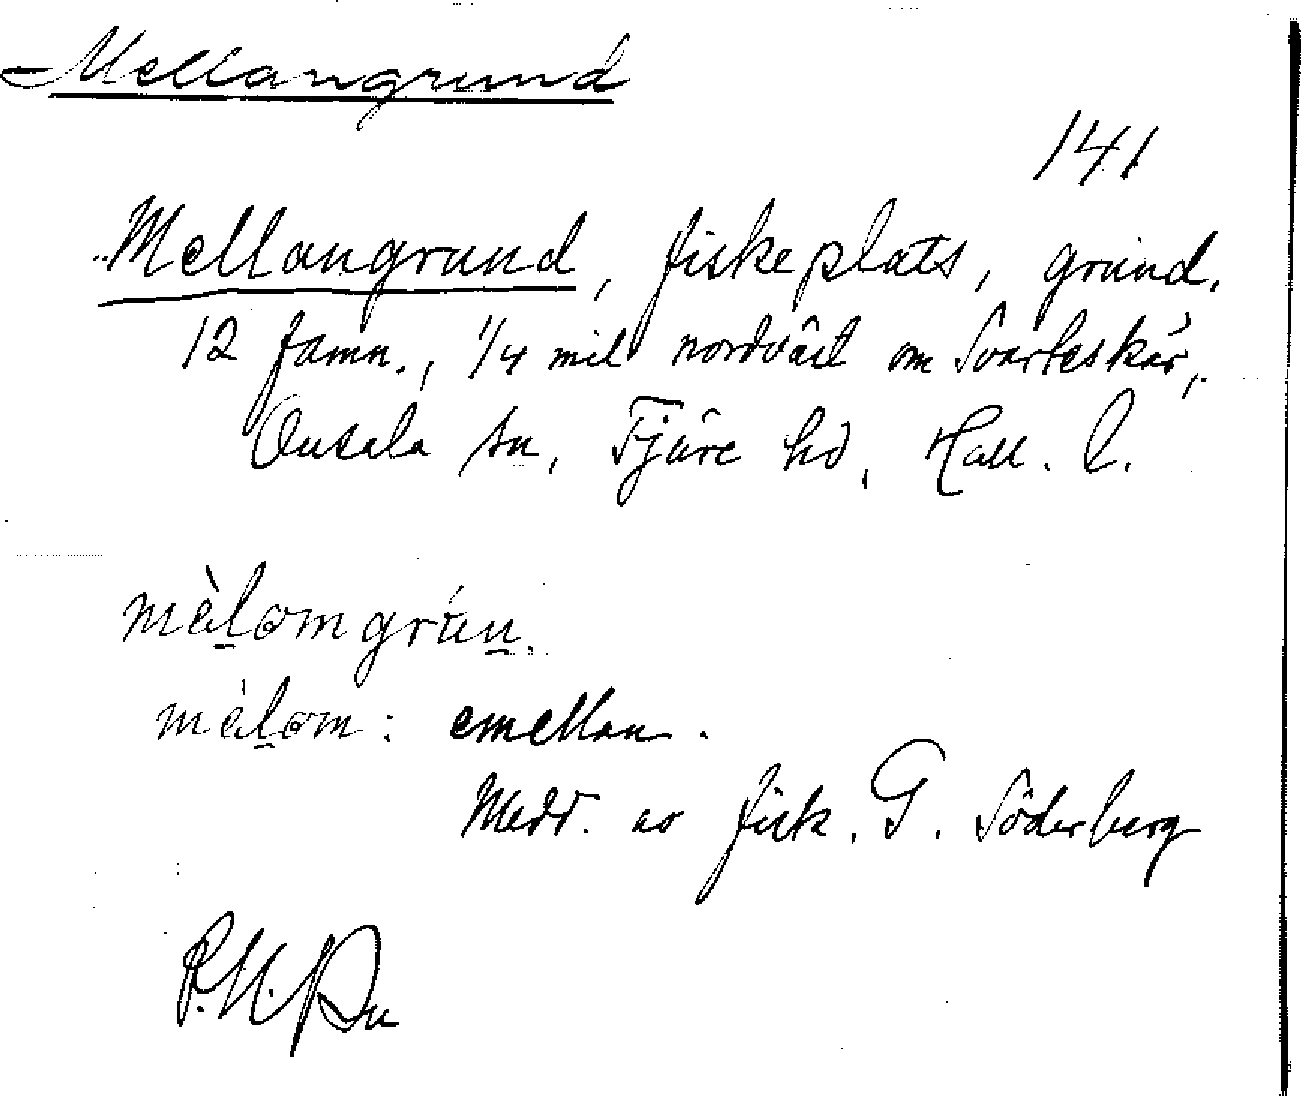 Mellangrund
141
Mellangrund, fiskeplats, grund.
12 famn., 1/4 mil nordväst om Svarteskär,
Onsala sn, Fjäre hd, Hall. l.
mèlomgrún.
mèlom: emellan.
Medd. av fisk. G. Söderberg